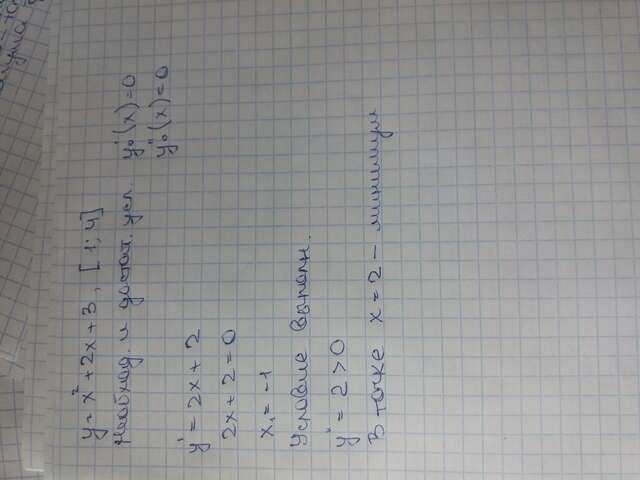 y = x² + 2x + 3, [1; 4]
Необход. и достат. усл. y₀'(x) = 0
y₀''(x) = 0
y' = 2x + 2
2x + 2 = 0
x₁ = -1
Условие выполн.
y'' = 2 > 0
В точке x = 2 - минимум